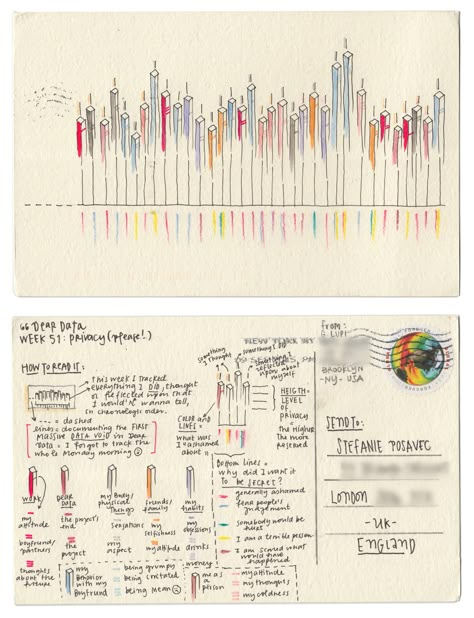 Dear Data
WEEK 51: privacy (please!)
HOW TO READ IT:
This week I tracked
everything I DID, thought
or reflected upon that
I would'n wanna tell,
in chronologic order.
--- = dashed
lines = documenting the FIRST
MASSIVE DATA VOID in Dear
Data - I forgot to track the
whole Monday morning
something
I thought
something I DID
something I
reflected
upon about
myself
COLOR AND
LINES =
what was I
ashamed about
HEIGTH =
LEVEL OF
PRIVACY
= the Higher
the more
reserved
Bottom lines =
why did I want it
to be secret?
generally ashamed
fear people's
judgement
somebody would be
hurt
I am a terrible person
I am scared what
would have
happened
WORK
my
attitude
boyfriend/
partners
thoughts
about the
future
DEAR
DATA
the project's
end
the
project
my body/
physical
things
sensations
my
aspect
friends/
family
my
selfishness
my attitude
my
habits
my
obsessions
drinks
money
my
behavior
with my
boyfriend
being grumpy
being irritated
being mean
me as a
person
my attitude
my thoughts
my coldness
FROM:
G. LUPI
BROOKLYN
-NY- USA
NEW YORK NY
SEND TO:
STEFANIE POSAVEC
LONDON
-UK-
ENGLAND